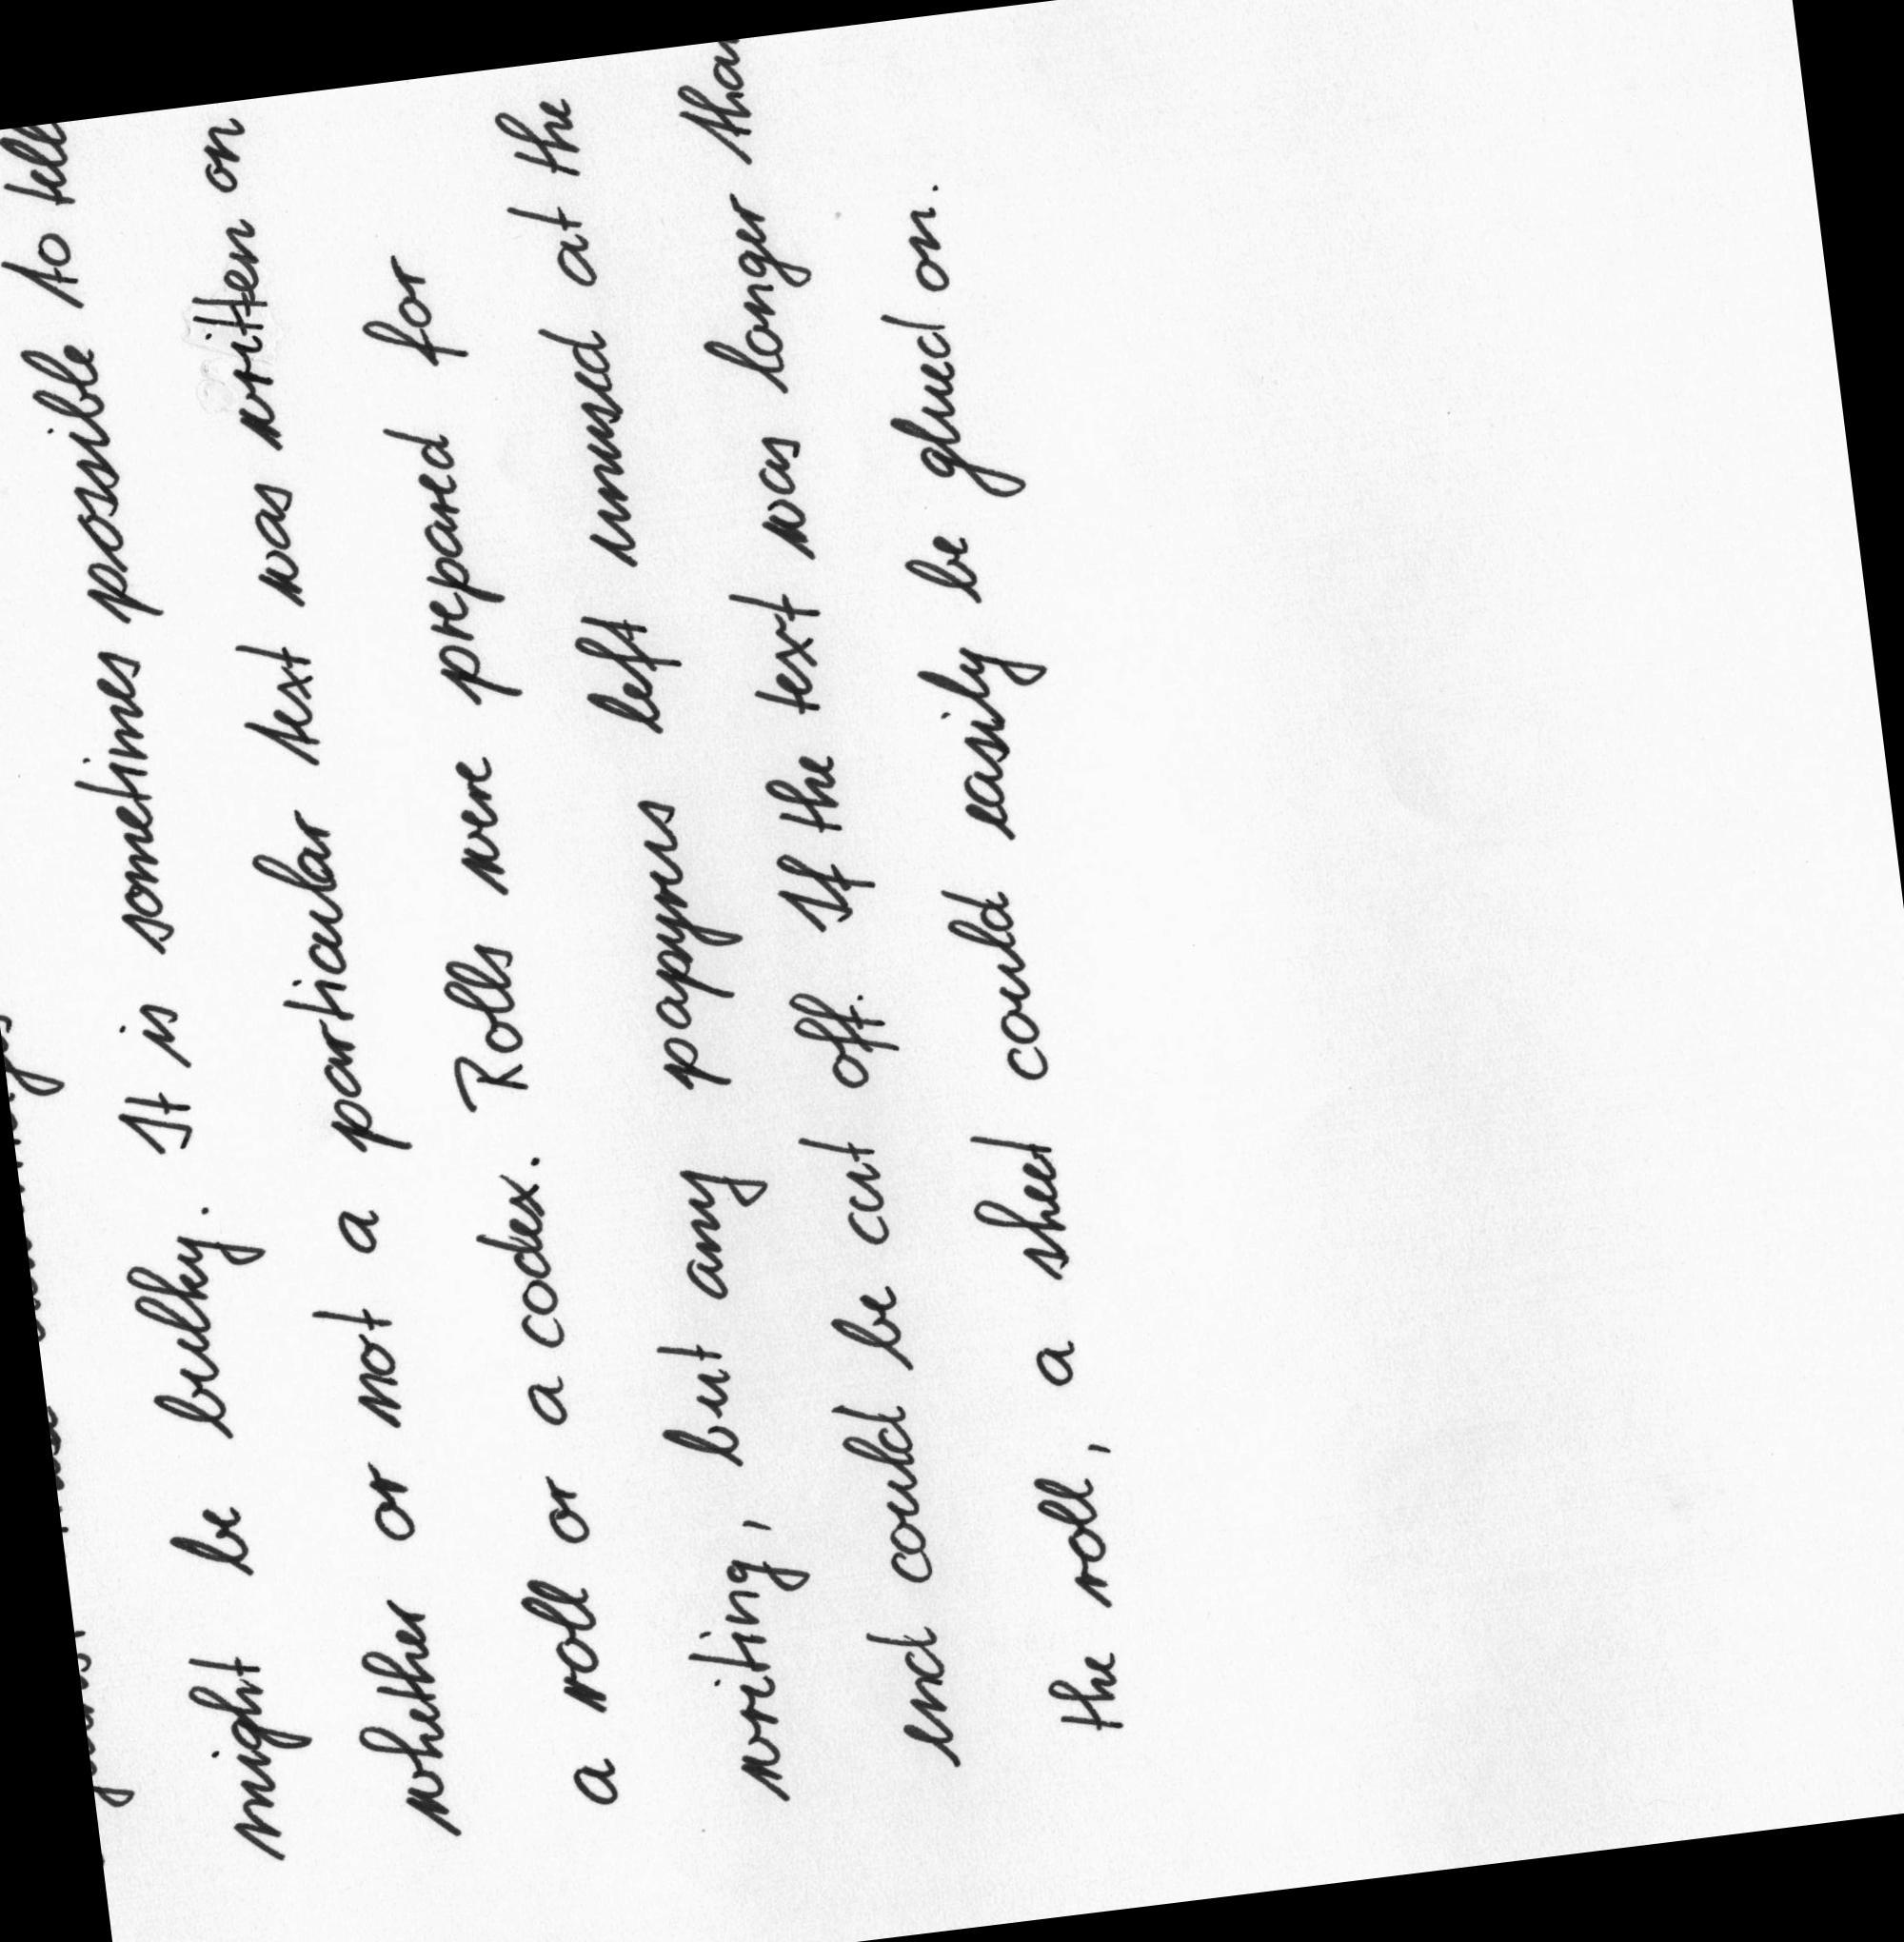 might be bulky. It is sometimes possible to tell
whether or not a particular text was written on
a roll or a codex. Rolls were prepared for
writing, but any papyrus left unused at the
end could be cut off. If the text was longer
the roll, a sheet could easily be glued on.